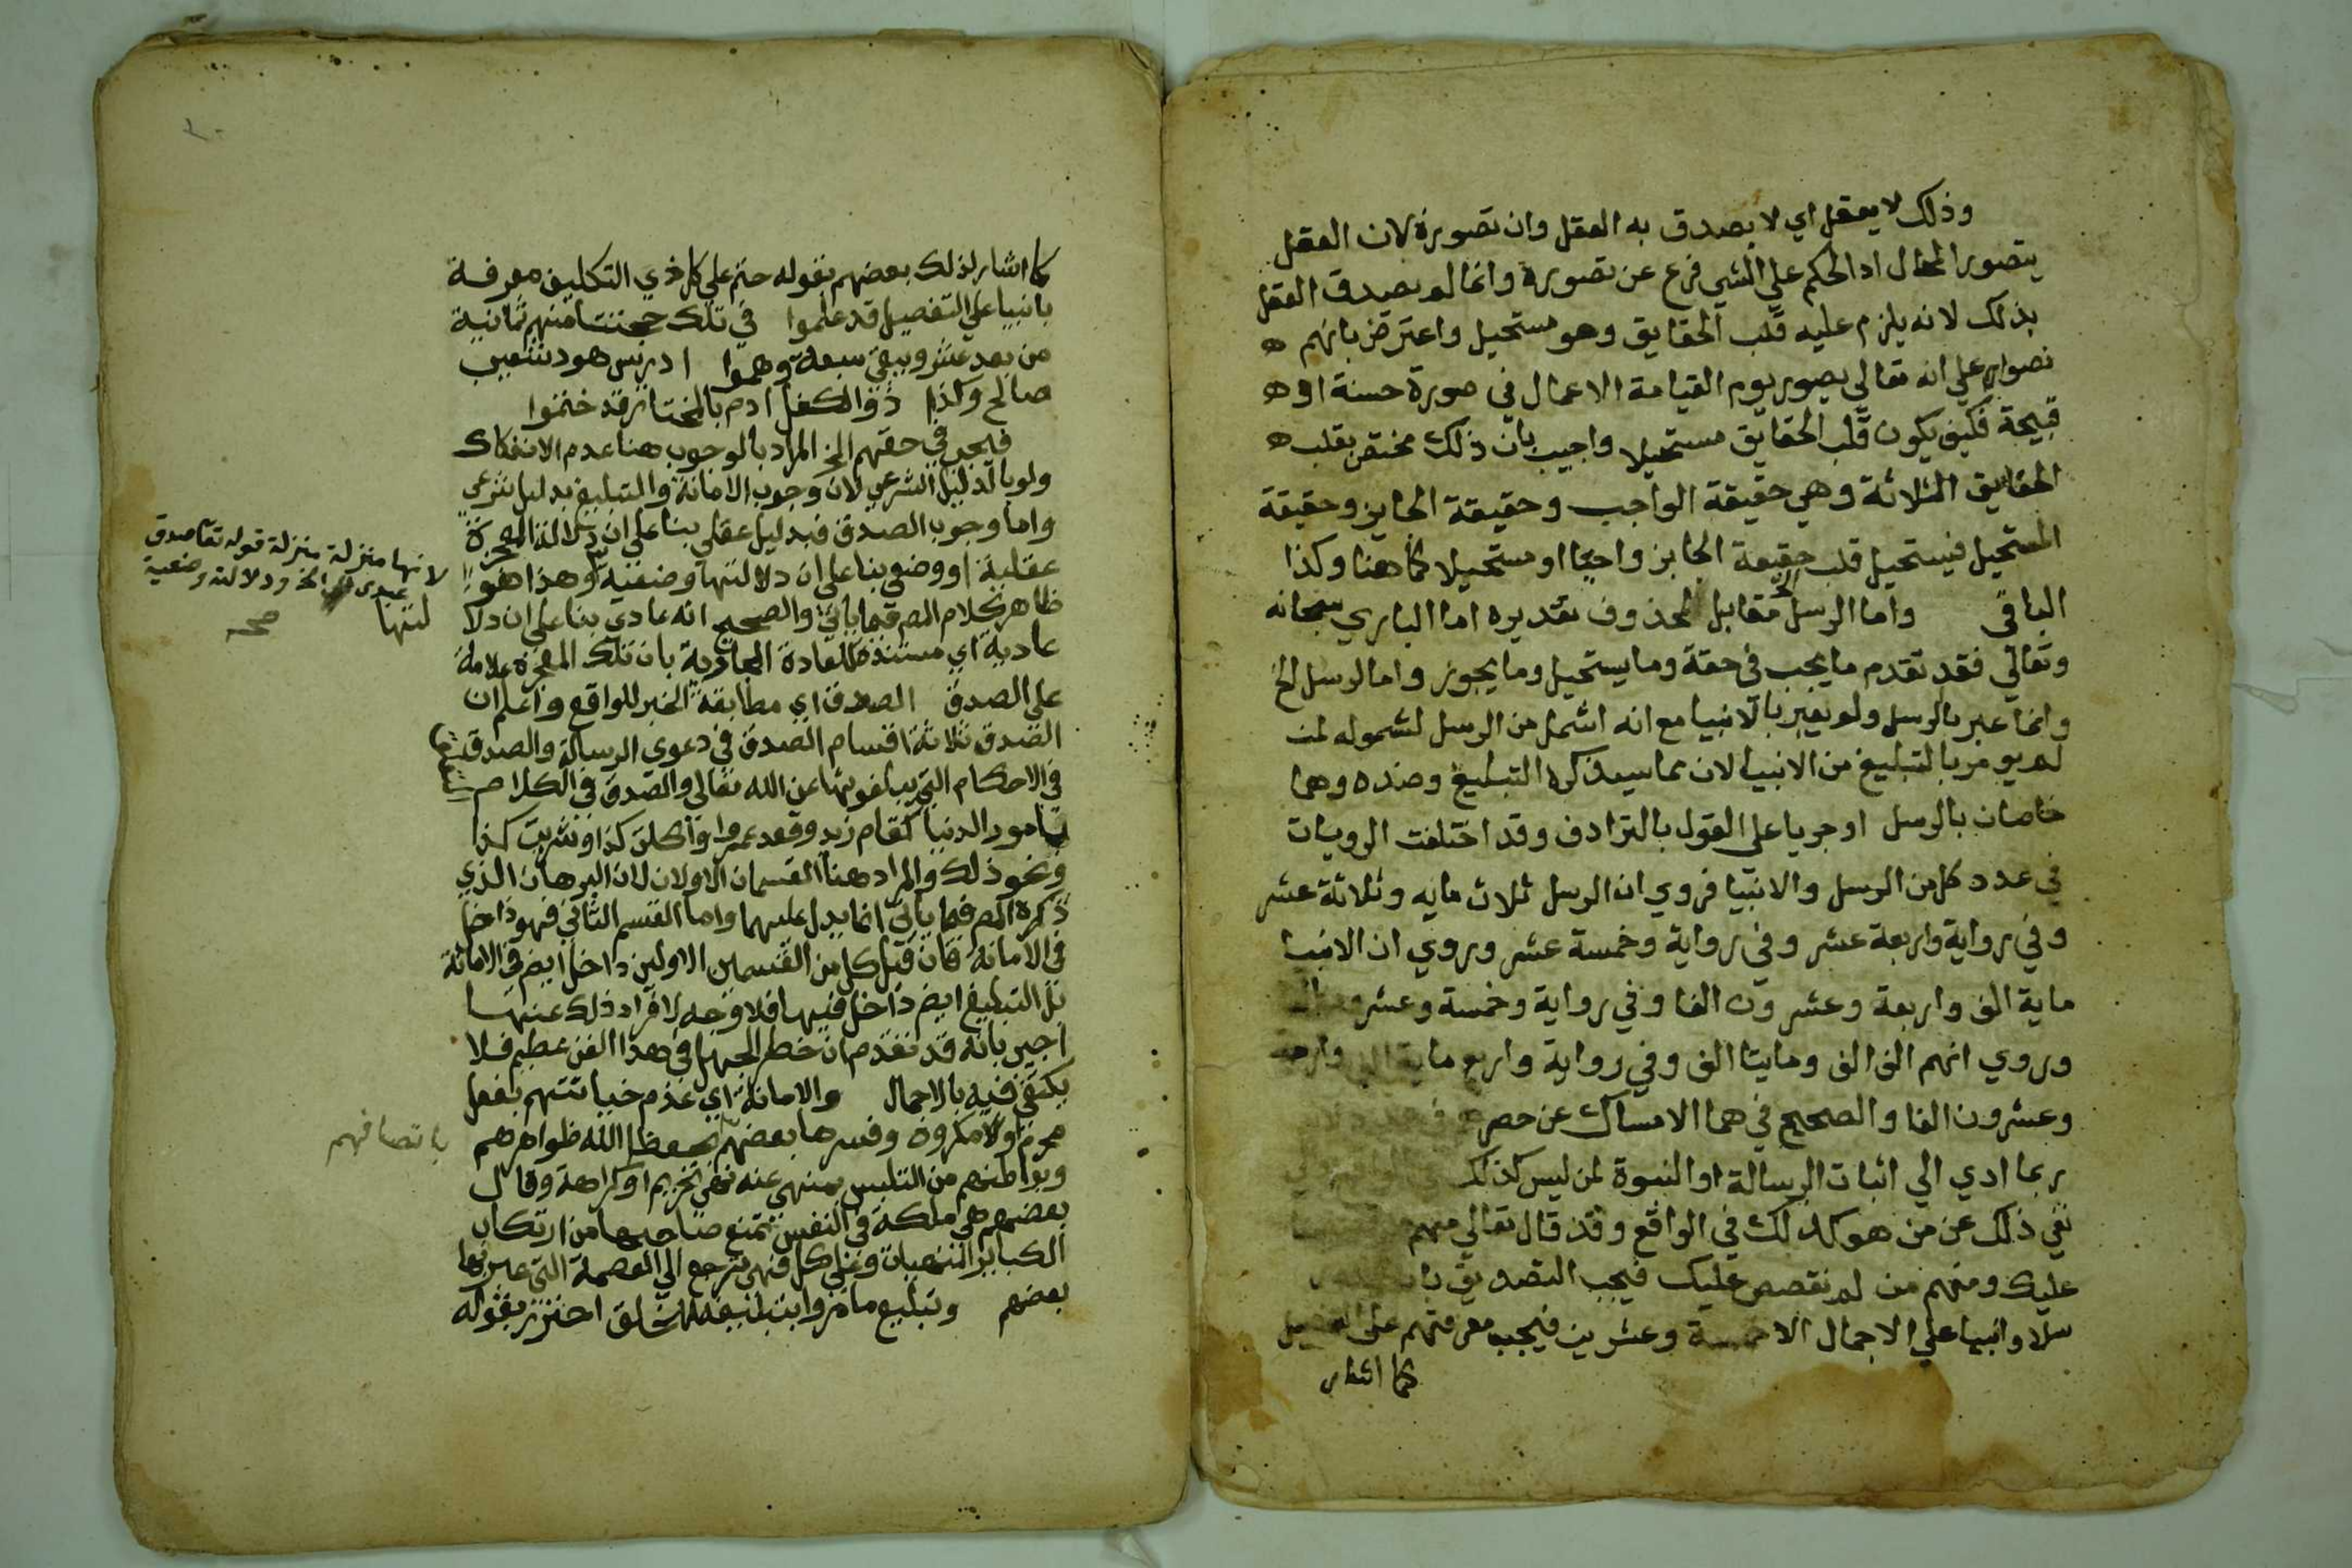 وذلك لا يعقل اي لا يصدق به العقل وان تصوره لان العقل
يتصور المحال اذ الحكم علي الشي فرع عن تصوره وانما لم يصدق العقل
بذلك لانه يلزم عليه قلب الحقايق وهو مستحيل واعترض بانهم
نصوا علي انه تعالي يصور يوم القيامة الاعمال في صورة حسنة او
قبيحة فكيف يكون قلب الحقايق مستحيلا واجيب بان ذلك مختص بقلب
الحقايق الثلاثة وهي حقيقة الواجب وحقيقة الجايز وحقيقة
المستحيل فيستحيل قلب حقيقة الجايز واجبا او مستحيلا كما هنا وكذا
الباقي واما الرسل الخ مقابل لمحذوف تقديره اما الباري سبحانه
وتعالي فقد تقدم ما يجب في حقه وما يستحيل وما يجوز واما الرسل الخ
وانما عبر بالرسل ولم يعبر بالانبيا مع انه اشمل من الرسل لشموله لمن
لم يومر بالتبليغ من الانبيا لان مما سيذكره التبليغ وضده وهما
خاصان بالرسل او جريا علي القول بالترادف وقد اختلفت الرويات
في عدد كل من الرسل والانبيا فروي ان الرسل ثلاث مايه وثلاثة عشر
وفي رواية واربعة عشر وفي رواية وخمسة عشر وروي ان الانبيا
ماية الف واربعة وعشرون الفا وفي رواية وخمسة وعشرون الفا
وروي انهم الف الف ومايتا الف وفي رواية واربع ماية الف واربعة
وعشرون الفا والصحيح فيهما الامساك عن حصر
ربما ادي الي اثبات الرسالة او النبوة لمن ليس كذلك
نفي ذلك عن من هو كذلك في الواقع وقد قال تعالي منهم
عليك ومنهم من لم نقصص عليك فيجب التصديق بان
سلا وانبيا علي الاجمال الا خمسة وعشرين فيجب معرفتهم علي التفصيل
كما اشار
كما اشار لذلك بعضهم بقوله حتم علي كل ذي التكليف معرفة
بانبيا علي التفصيل قد علموا في تلك حجتنا منهم ثمانية
من بعد عشر ويبقي سبعة وهموا ادريس هود شعيب
صالح وكذا ذو الكفل ادم بالمختار قد ختموا
فيجب في حقهم الخ المراد بالوجوب هنا عدم الانفكاك
ولو بالدليل الشرعي لان وجوب الامانة والتبليغ بدليل شرعي
واما وجوب الصدق فبدليل عقلي بنا علي ان دلالة المعجزة
عقلية او وضعي بنا علي ان دلالتها وضعية وهذا هو
ظاهر كلام المص فيما ياتي والصحيح انه عادي بنا علي ان دلا
لتها
عادية اي مستندة للعادة الجارية بان تلك المعجزة علامة
علي الصدق الصدق اي مطابقة الخبر للواقع واعلم ان
الصدق ثلاثة اقسام الصدق في دعوي الرسالة والصدق
في الاحكام التي يبلغونها عن الله تعالي والصدق في الكلام
بامور الدنيا كقام زيد وقعد عمروا واكلت كذا وشربت كذا
ونحو ذلك والمراد هنا القسمان الاولان لان البرهان الذي
ذكره المص فيما ياتي انما يدل عليهما واما القسم الثاني فهو داخل
في الامانة فان قيل كل من القسمين الاولين داخل ايض في الامانة
بل التبليغ ايض داخل فيها فلا وجه لافراد ذلك عنها
اجيب بانه قد تقدم ان خطر الجهل في هذا الفن عظيم فلا
يكتفي فيه بالاجمال والامانة اي عدم خيانتهم بفعل
محرم او لا مكروه وفسرها بعضهم بحفظ الله ظواهرهم
وبواطنهم من التلبس بمنهي عنه نهي تحريم او كراهة وقال
بعضهم هي ملكة في النفس تمنع صاحبها من ارتكاب
الكباير المنهيات وعلي كل فهي ترجع الي العصمة التي عبر بها
بعضهم وتبليغ ما امروا بتبليغه للخلق احترز بقوله
لانها منزلة منزلة قوله تعا صدق
عبدي الخ ودلالته وضعية
صح
باتصافهم